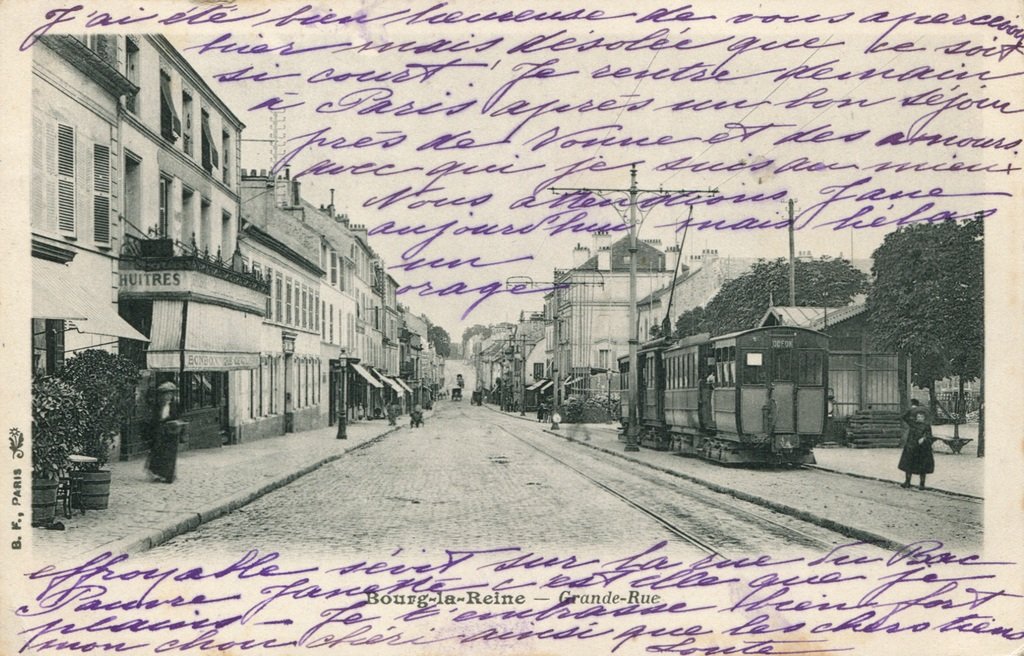 J'ai été bien heureuse de vous apercevoir
hier mais désolée que ce soit
si court! Je rentre demain
à Paris après un bon séjour
près de Nonne et des amours
avec qui je suis au mieux
Nous attendions Jane
aujourd'hui mais hélas
un
orage
HUITRES
ODÉON
B. F., PARIS
effroyable sévit sur la rue du Bac
Pauvre Janette! c'est elle que je
Bourg-la-Reine — Grande-Rue
plains — Je t'embrasse bien fort
mon chou chéri ainsi que les chers tiens
Loute